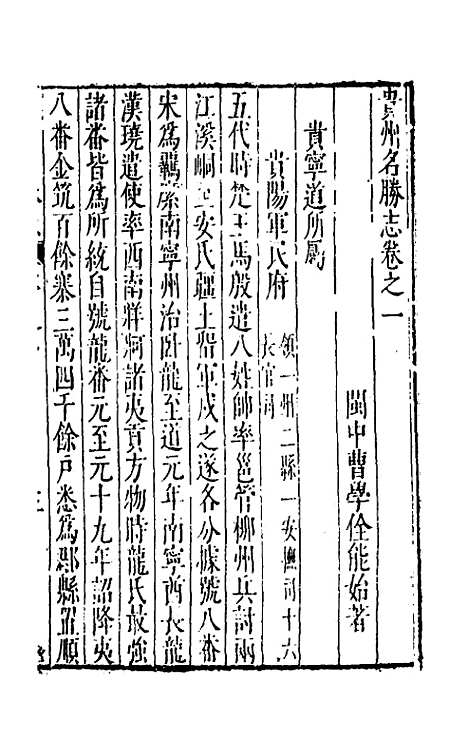 貴州名勝志卷之一
閩中曹學佺能始著
貴寧道所屬
貴陽軍民府
領一州二縣一安撫司十六
長官司
五代時楚王馬殷遣八姓帥率邕管柳州兵討兩
江溪峒至安氏疆土畱軍戍之遂各分據號八番
宋爲羈縻南寧州治卧龍至道元年南寧酋長龍
漢㙱遣使率西南牂牁諸夷貢方物時龍氏最強
諸番皆爲所統自號龍番元至元十九年詔降夷
八番金筑百餘寨三萬四千餘户悉爲郡縣置順